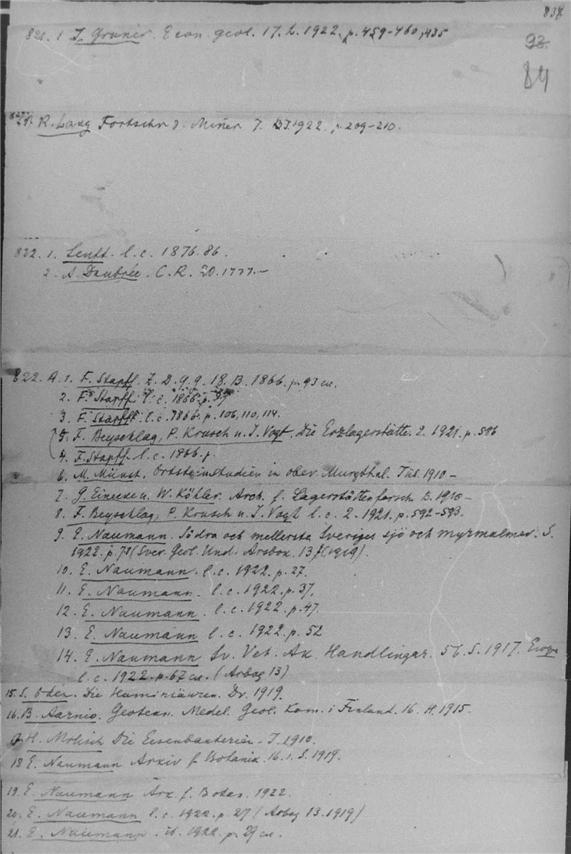 838
93.
84
821. 1 J. Gruner. Econ. geol. 17. L. 1922, p. 459-460, 435
R. Lang Fortschr d. Miner. 7. B. 1922. p. 209-210.
822. 1. Senft. l.c. 1876. 86.
2. A. Daubrée. C.R. 20. 1777.-
822. A. 1. F. Stapff. Z. D. g. g. 18. B. 1866. p. 93
2. F. Stapff. l.c. 1866. p.
3. F. Stapff l.c. 1866. p. 106, 110, 114.
5. F. Beyschlag, P. Krusch u. J. Vogt. Die Erzlagerstätte. 2. 1921. p. 596
4. F. Stapff. l.c. 1866. p.
6. M. Münst. Ortsteinstudien in ober Murgthal. 1910 -
7. G. Einecke u. W. Köhler. Arch. f. Lagerstättenforsch. 1910 -
8. F. Beyschlag, P. Krusch u. J. Vogt l.c. 2. 1921. p. 592-593.
9. E. Naumann. Södra och mellersta Sveriges sjö och myrmalmer. S.
1922. p. (Sver. Geol. Und. Arsbok. 13 (1919).
10. E. Naumann. l.c. 1922. p. 27.
11. E. Naumann. l.c. 1922. p. 37.
12. E. Naumann l.c. 1922. p. 47
13. E. Naumann l.c. 1922. p. 52
14. E. Naumann Sv. Vet. Ak. Handlingar. 56. S. 1917.
l.c. 1922. p. 62 (Arbog 13)
15. S. Oden. Die Huminsäuren. Dr. 1919.
16. B. Aarnio. Geotecn. Medel. Geol. Kom. i Finland. 16. H. 1915.
17. H. Molisch Die Eisenbakterien. J. 1910.
18 E. Naumann Arkiv f Botanik. 16. 1. S. 1919.
19. E. Naumann Ark. f. Botan. 1922.
20. E. Naumann l.c. 1922. p. 27 (Arbog 13. 1919)
21. E. Naumann. 1922. p. 27